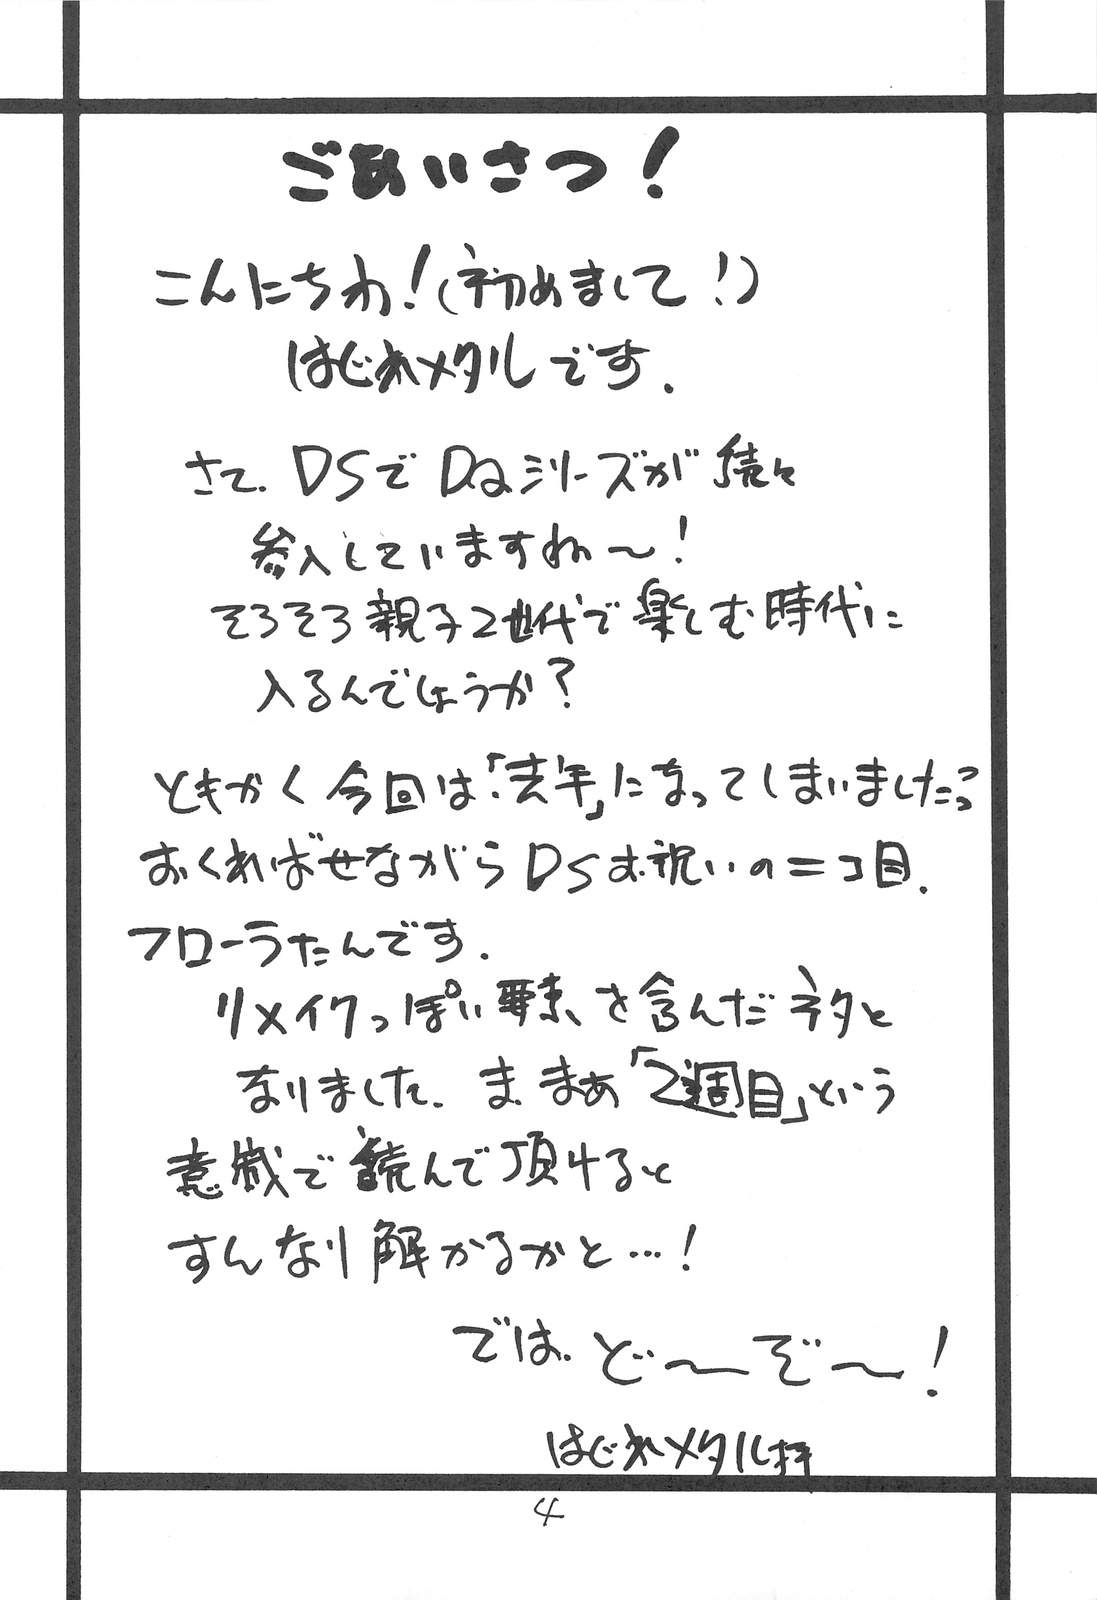 ごあいさつ!
こんにちわ!(初めまして!)
はじれメタルです.
さて. DSでDQシリーズが続々
参入していますね〜!
そろそろ親子2世代で楽しむ時代に
入るんでしょうか?
ともかく今回は「去年」になってしまいましたっ
おくればせながらDSお祝いの二コ目.
フローラたんです.
リメイクっぽい要素を含んだネタと
なりました. ま. まぁ「2週目」という
意識で読んで頂けると
すんなり解かるかと…!
では. ど〜ぞ〜!
はじれメタル拝
4